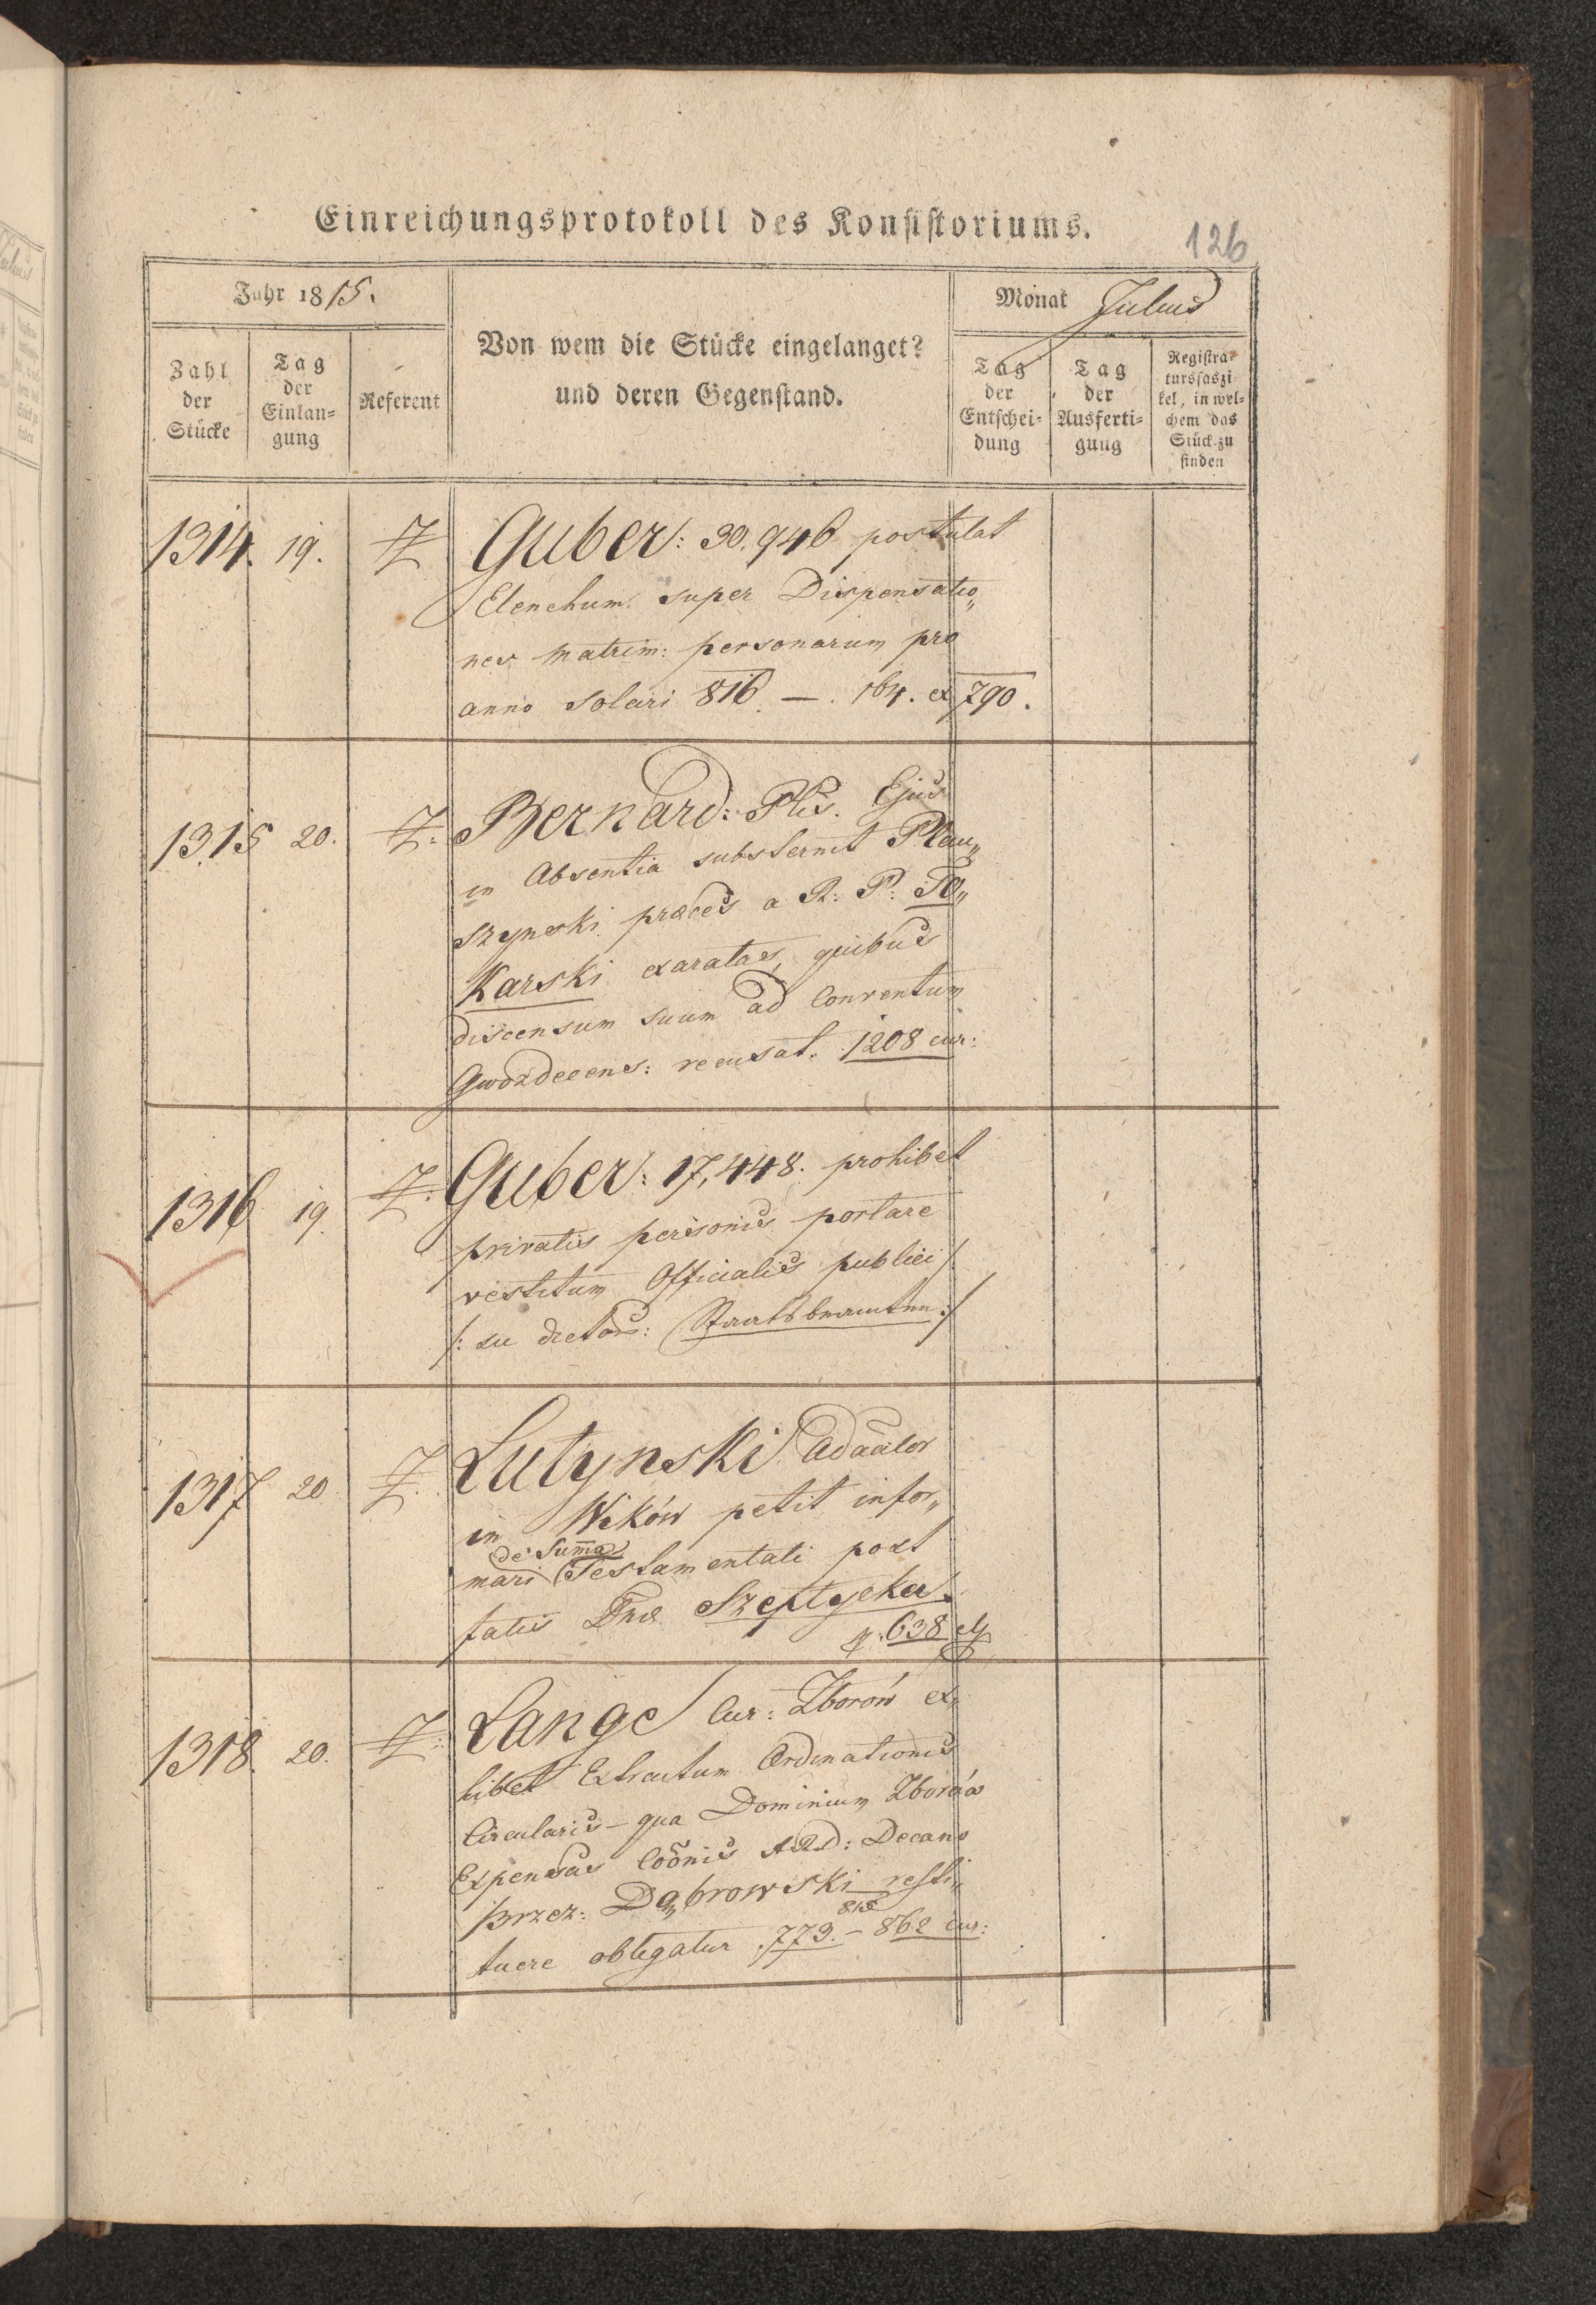 Einreichungsprotokoll des Konsistoriums.
126
Jahr 1815.
Monat Julius
Zahl der Stücke
Tag der Einlan=gung
Referent
Von wem die Stücke eingelanget?
und deren Gegenstand.
Tag der Entschei=dung
Tag der Ausferti=gung
Registra=tursfaszi=kel, in wel=chem das Stück zu finden
1314. 19. Z Guber: 30.946 postulat
Elenchum super Dispensatio„
nes matrim: personarum pro
anno solari 816. — . 164. ex 790.
1315 20. Z: Bernard: Plis. Ejus
in Absentia substernit Plau„
szynski preces a R: P: To„
Karski exaratas, quibus
discensum suum ad Conventum
Gwozdecens: recusat. 1208 cur:
1316 19. Z: Guber: 17,448. prohibet
privatis personis portare
vestitum Officialis publici
/: su dictos: Staatsbeamten :/
1317 20 Z. Lutynski Adãalor
in Wików petit infor„
de Suma
mari Testamentali post
fatis Dnæ Szeptycka.
q: 638
1318. 20. Z: Lange Cur: Zborów ex„
hibet Extractum Ordinationis
Circularis - qua Dominium Zborów
Expensas Coõnis ARd: Decano
Brzez: Dąbrowski resti„
815
tuere obligatur . 773. - 862 cur: